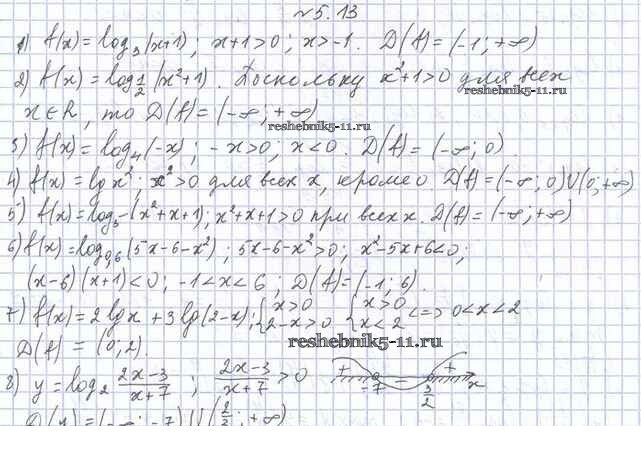 №5.13
1) f(x) = log₃(x+1); x+1>0; x>-1. D(f) = (-1; +∞)
2) f(x) = log_{1/2}(x²+1). Поскольку x²+1>0 для всех
reshebnik5-11.ru
x∈R, то D(f) = (-∞; +∞)
reshebnik5-11.ru
3) f(x) = log₄(-x); -x>0; x<0. D(f) = (-∞; 0)
4) f(x) = lg x²; x²>0 для всех x, кроме 0 D(f) = (-∞; 0)U(0; +∞)
reshebnik5-11.ru
5) f(x) = log₅-(x²+x+1); x²+x+1>0 при всех x. D(f) = (-∞; +∞)
6) f(x) = log_{0,6}(5x-6-x²); 5x-6-x²>0; x²-5x+6<0;
(x-6)(x+1)<0; -1<x<6; D(f) = (-1; 6).
7) f(x) = 2lgx + 3lg(2-x); {x>0 2-x>0 {x>0 x<2 <=> 0<x<2
reshebnik5-11.ru
D(f) = (0; 2).
8) y = log₂ (2x-3)/(x+7); (2x-3)/(x+7) > 0 + -7 - 3/2 + x
D(y) = (-∞; -7)U(3/2; +∞)